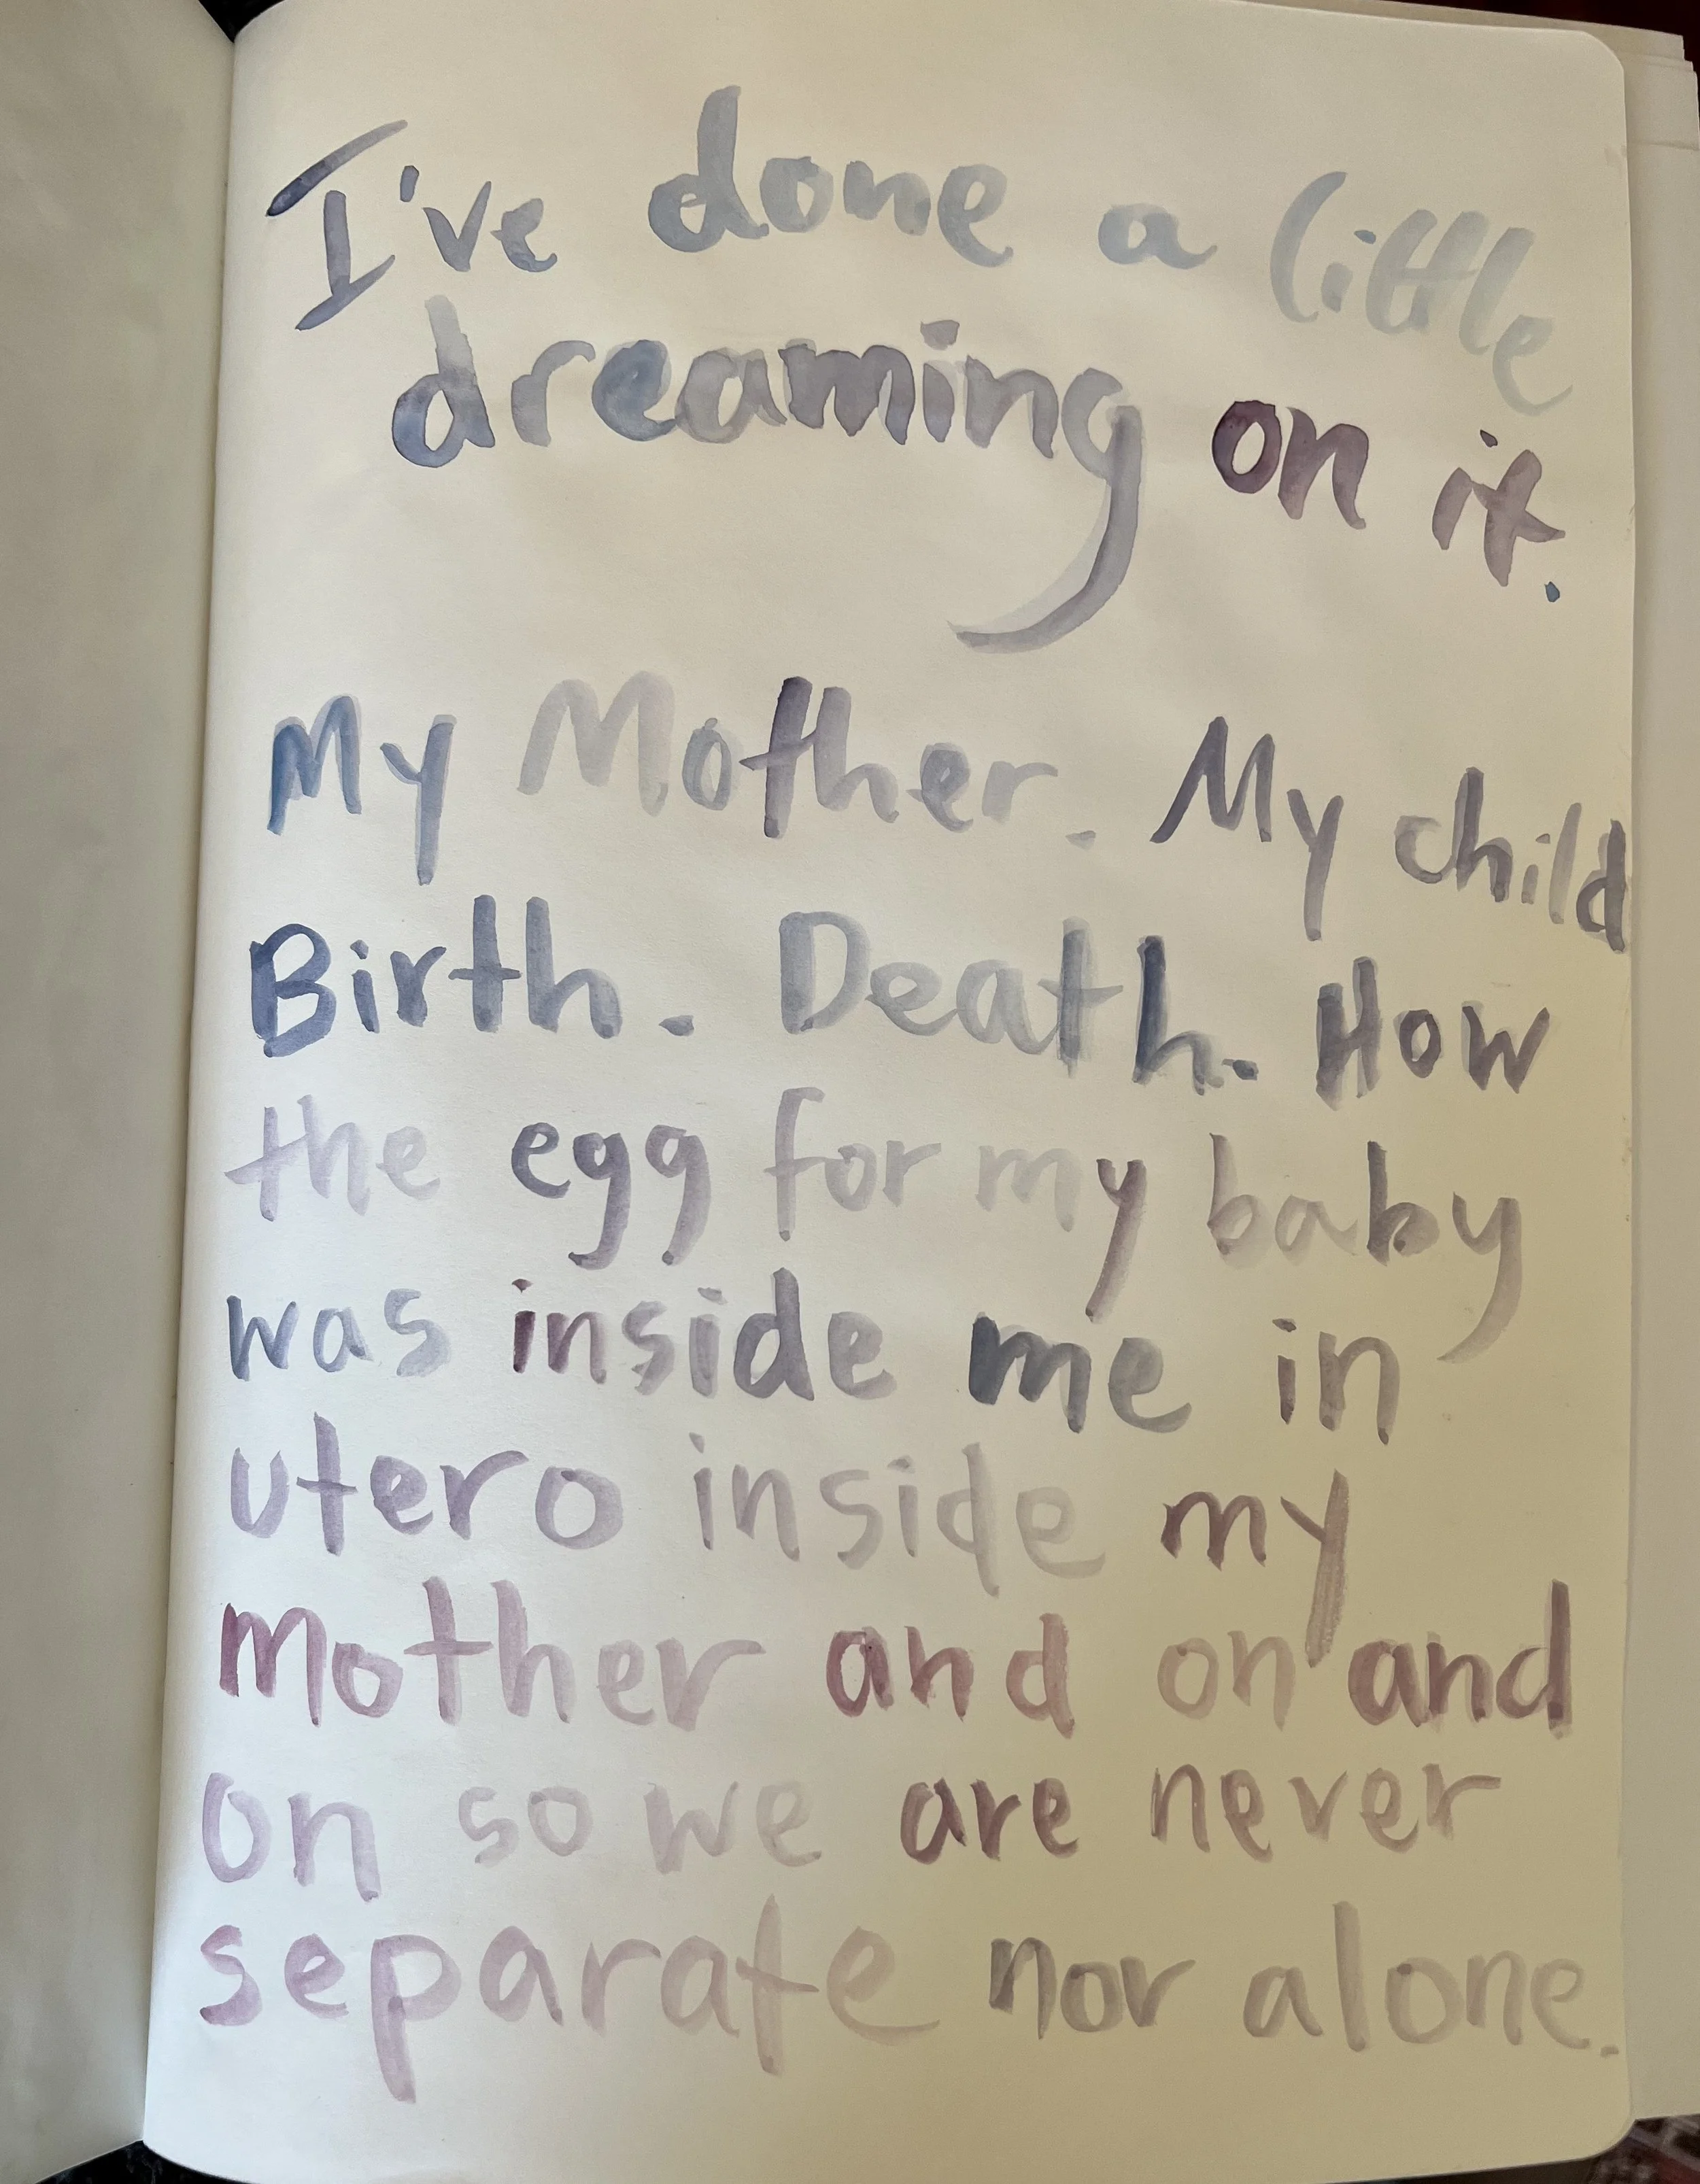 I've done a little
dreaming on it.
My Mother. My child
Birth. Death. How
the egg for my baby
was inside me in
utero inside my
mother and on and
on so we are never
separate nor alone.